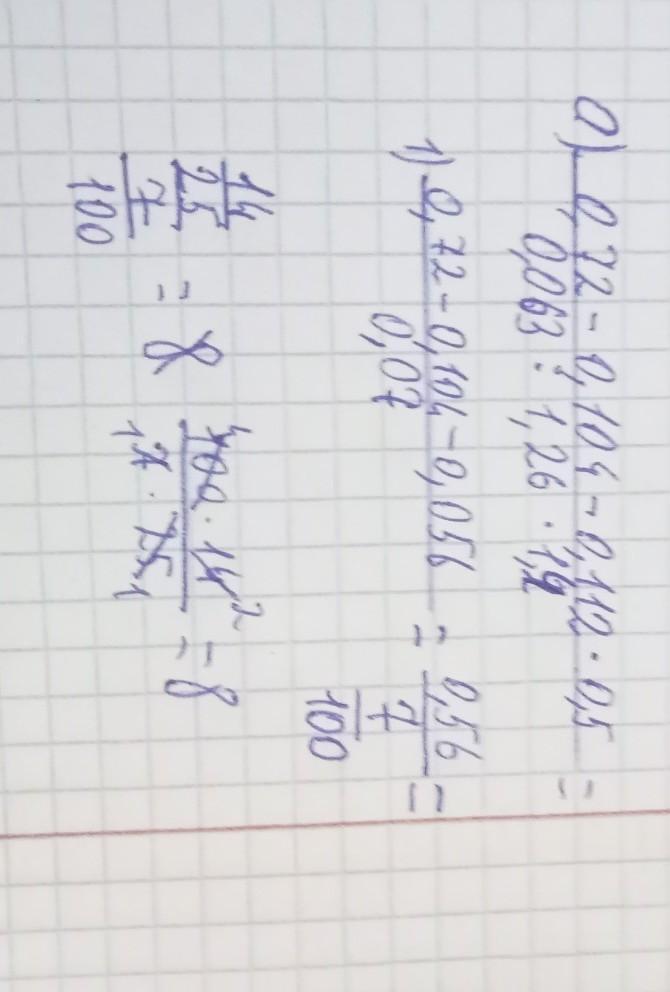 а) 0,72 - 0,104 - 0,112 · 0,5 =
0,063 : 1,26 · 1,4
1) 0,72 - 0,104 - 0,056 = 0,56 =
0,07 7
100
14
25 = 8 100 · 14 2 = 8
7 1 7 · 25 1
100